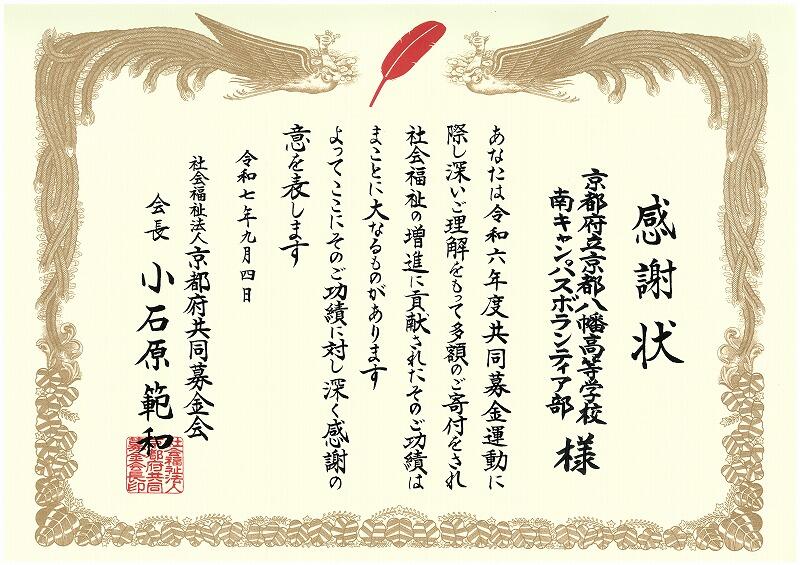 感謝状
京都府立京都八幡高等学校
南キャンパスボランティア部 様
あなたは令和六年度共同募金運動に
際し深いご理解をもって多額のご寄付をされ
社会福祉の増進に貢献されたそのご功績は
まことに大なるものがあります
よってここにそのご功績に対し深く感謝の
意を表します
令和七年九月四日
社会福祉法人京都府共同募金会
会長 小石原範和
社会福祉法人
京都府共同
募金会長印